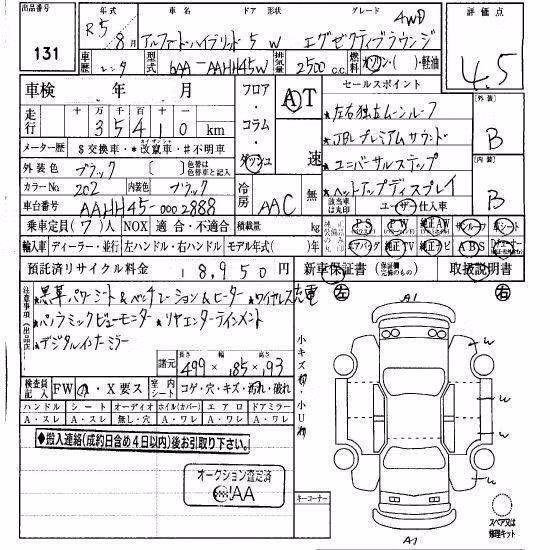 出品番号 131
年式 R5年 8月
車名 アルファードハイブリッド
ドア 形状 5 W
グレード エグゼクティブラウンジ 4WD
評価点 4.5
車歴 レンタ
型式 6AA-AAHH45W
排気量 2500 c.c.
ガソリン・軽油
車検 年 月
走行 万 千 百 十 35410 km
メーター歴 $交換車・*改竄車・#不明車
外装色 ブラック
色替は色替車と記入
カラーNo. 202 内装色 ブラック
車台番号 AAHH45-0002888
フロア・コラム・ダッシュ
AT 速
冷房 AAC 無
セールスポイント
★左右独立ムーンルーフ
★JBLプレミアムサウンド
★ユニバーサルステップ
★ヘッドアップディスプレイ
該当車は丸印 ユーザー仕入車
[外装] B
[内装] B
乗車定員 (7)人 NOX 適合・不適合 積載量 kg
PS PW 純正AW サンルーフ 革シート
輸入車 ディーラー・並行 左ハンドル・右ハンドル モデル年式( )年
エアバッグ 純正TV 純正ナビ ABS
預託済リサイクル料金 18,950円
新車保証書(保証継承完備のもの) 取扱説明書
注意事項(出品店)
★黒革パワーシート&ベンチレーション&ヒーター ★ワイヤレス充電
★パノラミックビューモニター ★リヤエンターテインメント
★デジタルインナーミラー
諸元 長さ 499 幅 185 高さ 193
検査員記入 FW X要ス 室内シート コゲ・穴・キズ・汚れ・破れ
ハンドル シート オーディオ ホイル(カバー) エアロ ドアミラー
A・スレ A・スレ 無し・穴 A・ワレ A・ワレ A・ワレ
◆搬入連絡(成約日含め4日以内)後お引取り下さい。
オークション査定済
AA
小キズ有・小U有
キーコーナー
左 右
A1
W
W
W
A1
スペア又は修理キット